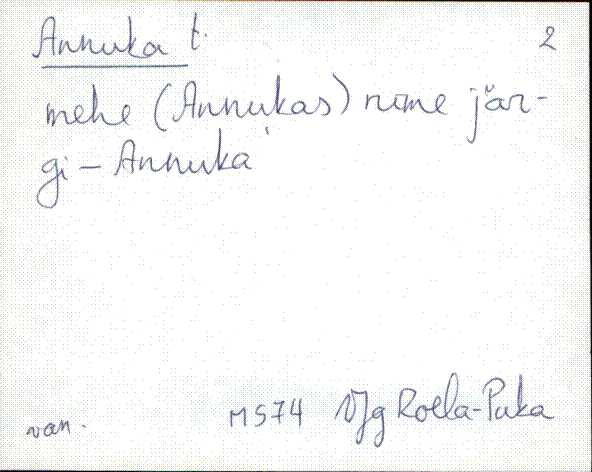 Annuka t. 2
mehe (Annukas) nime jär-
gi - Annuka
van. MS74 VJg Roela-Puka